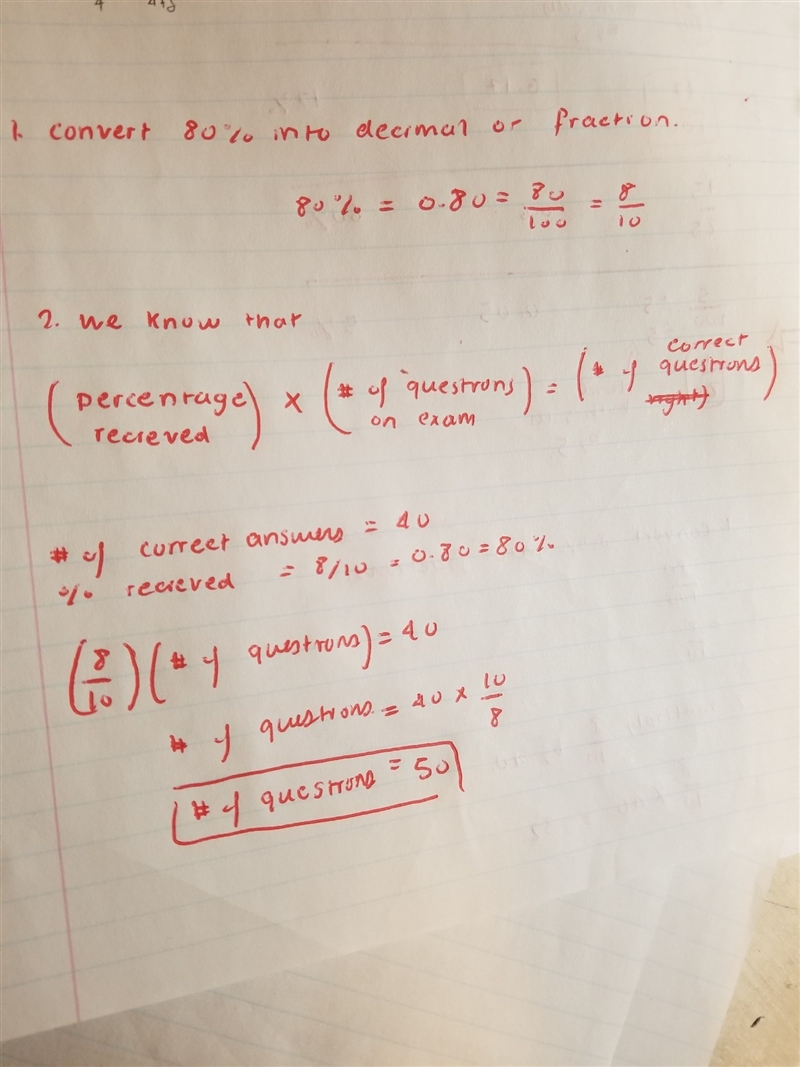 4 4+8
1. convert 80% into decimal or fraction.
80% = 0.80 = 80/100 = 8/10
2. we know that
(percentage recieved) × (# of questions on exam) = (# of correct questions)
# of correct answers = 40
% recieved = 8/10 = 0.80 = 80%
(8/10)(# of questions) = 40
# of questions = 40 × 10/8
# of questions = 50